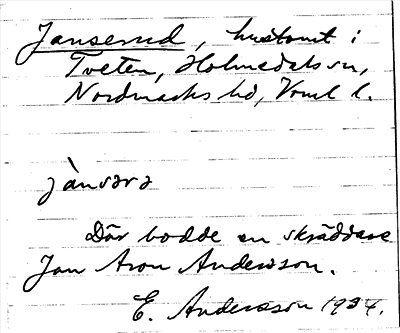 Janserud, hustomt i
Tveten, Holmedals sn,
Nordmarks hd, Vrml l.
jànsərə
Där bodde en skräddare
Jan Aron Andersson.
E. Andersson 1934.